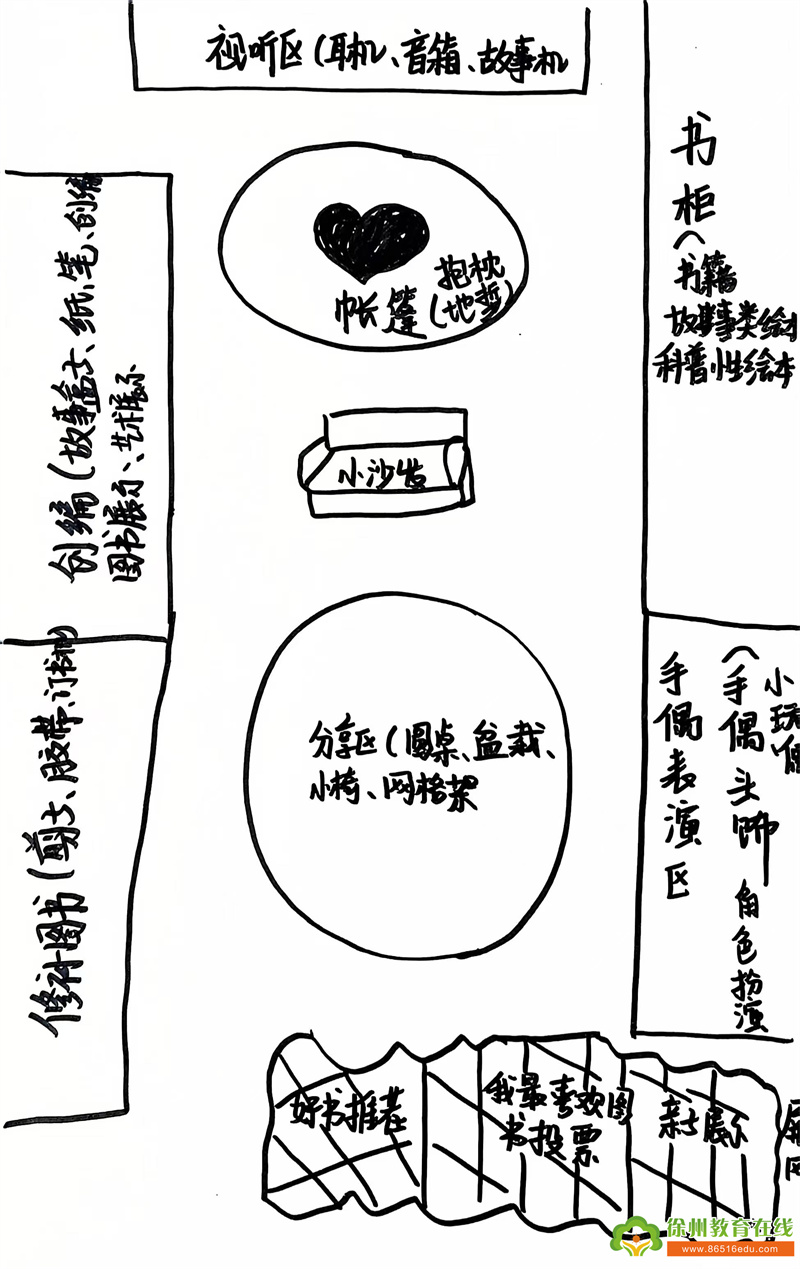 视听区(耳机、音箱、故事机
抱枕
帐篷(地垫)
书柜(
书籍
故事类绘本
科普性绘本
创编(故事盒子、纸、笔、创编
图书展示、艺术展示
小沙发
修补图书(剪子、胶带、订书机)
分享区(圆桌、盆栽、
小椅、网格架
手偶表演区
(手偶头饰 角色扮演
小玩偶
好书推荐
我最喜欢图
书投票
亲子展示
徐州教育在线
www.86516edu.com